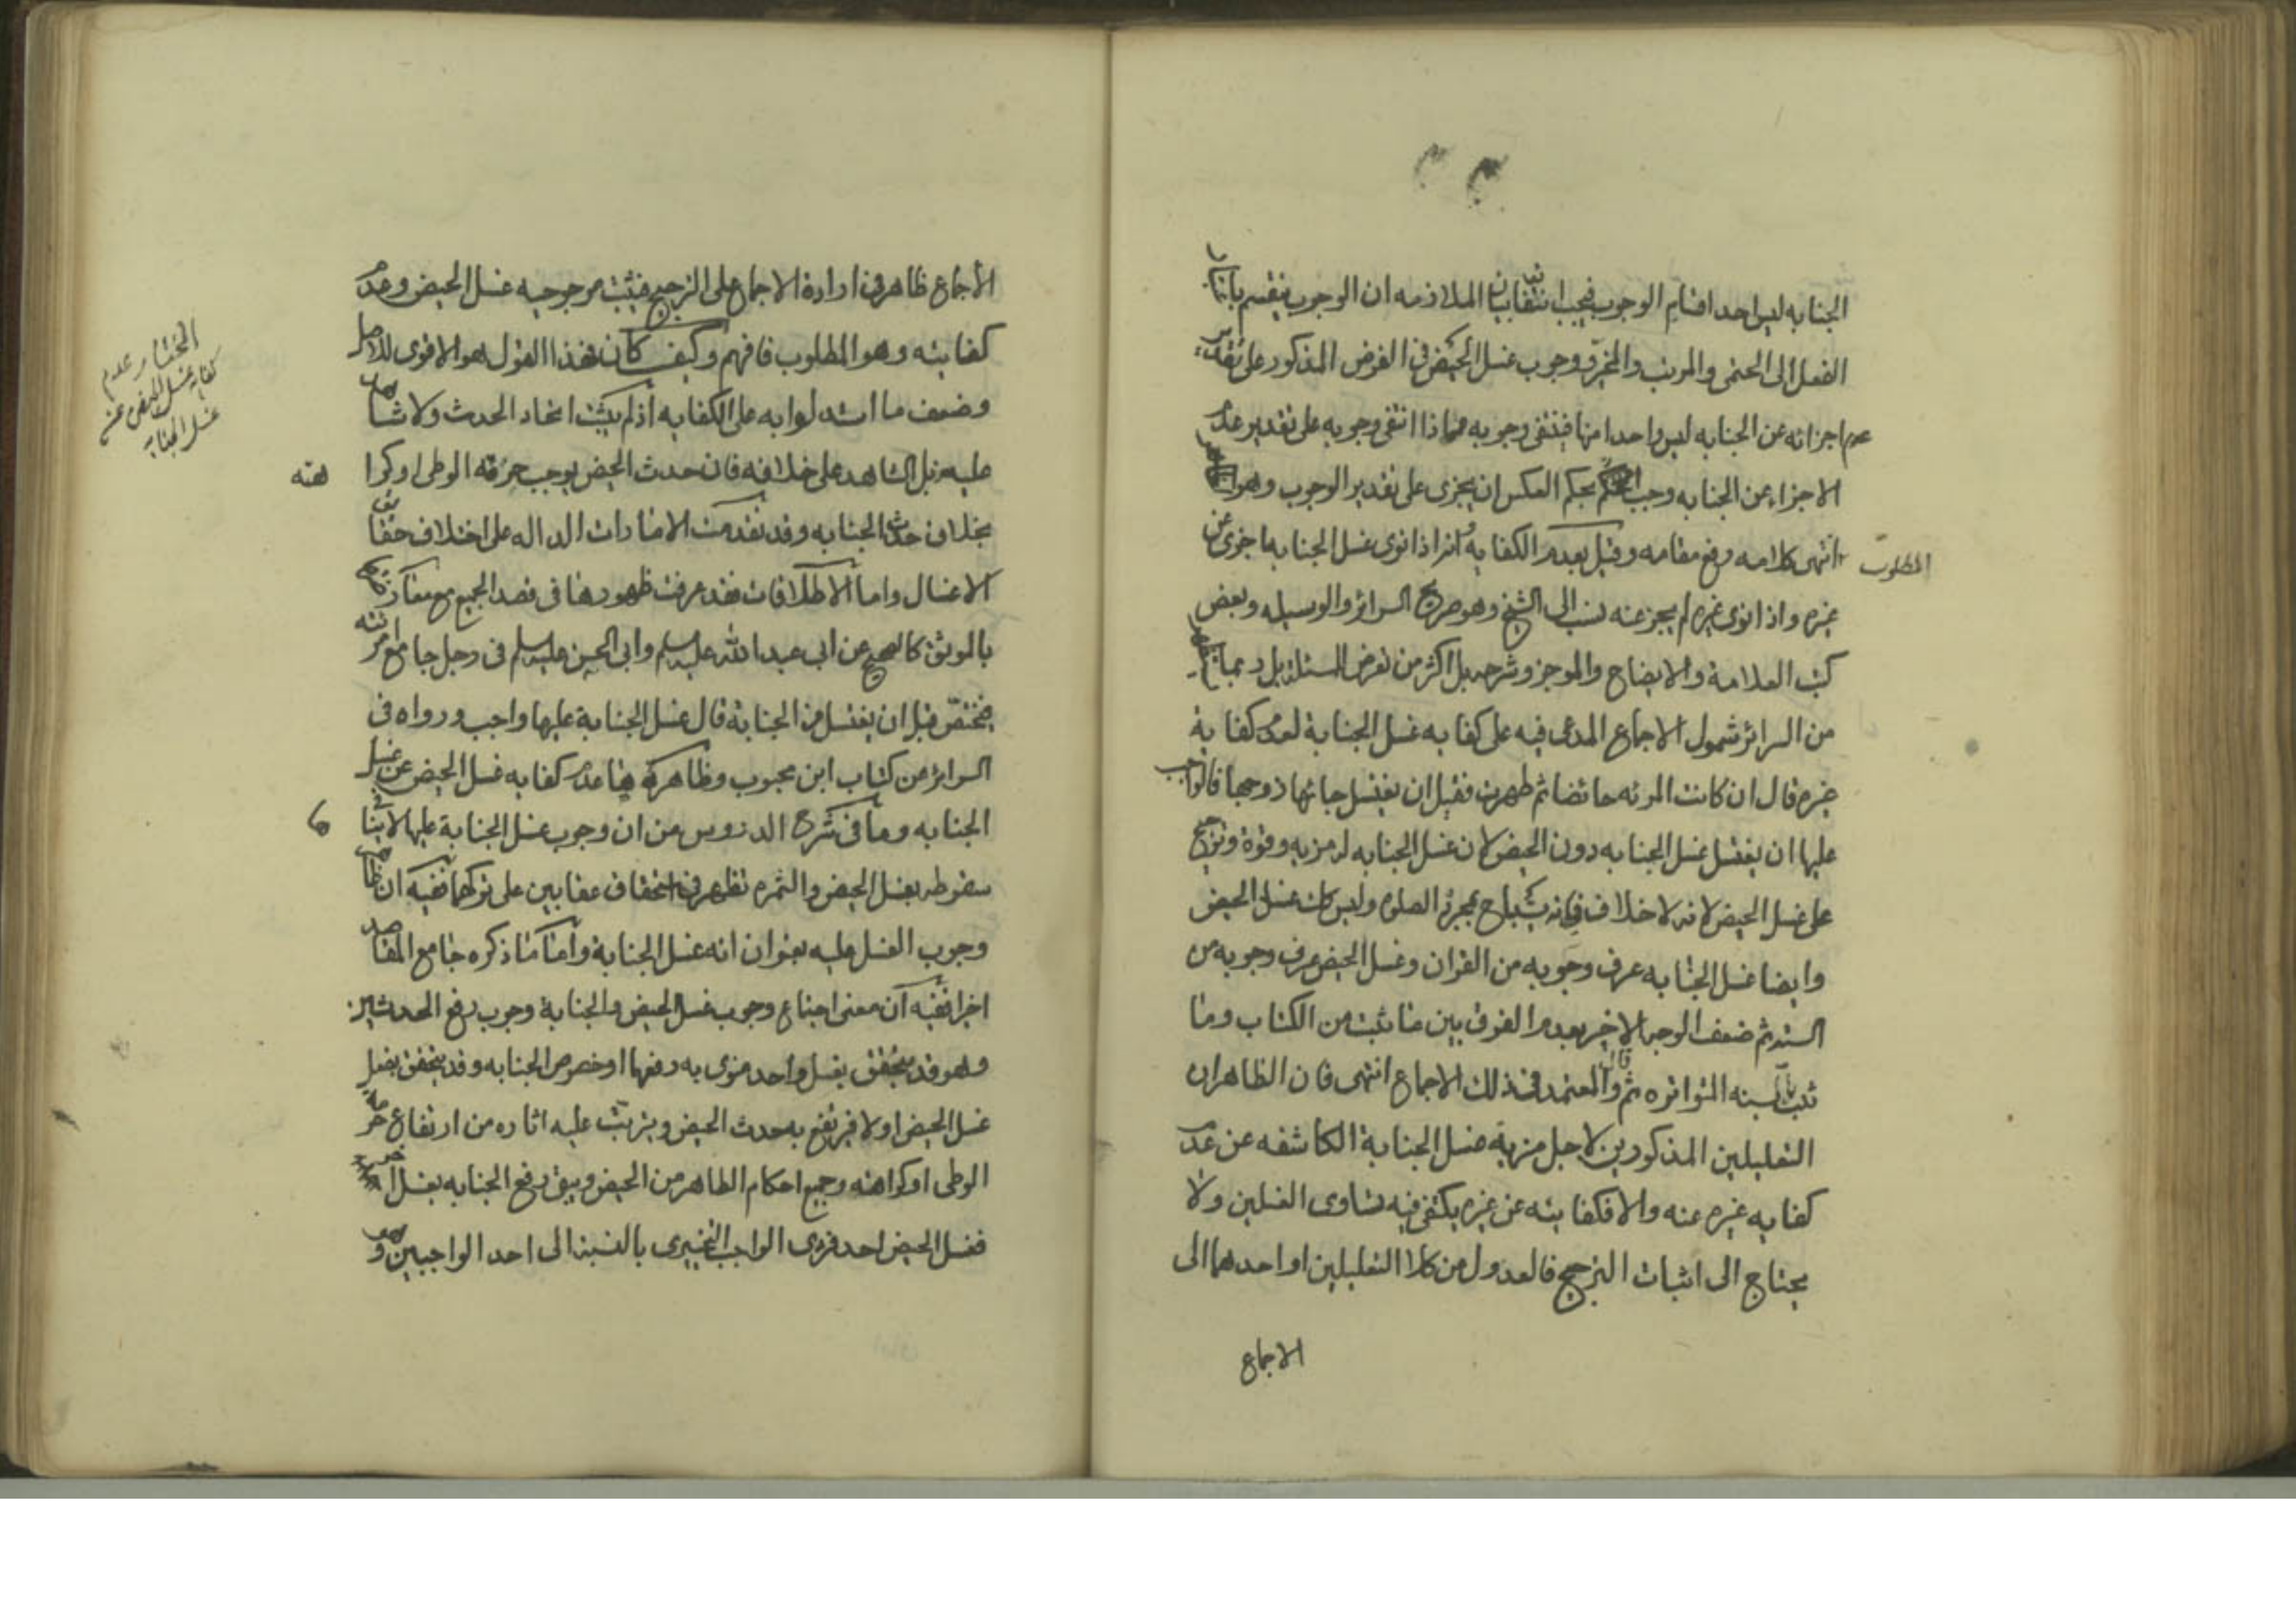 الجنابه ليس احد اقسام الوجوب فيجب انتفائها بيان الملازمه ان الوجوب ينقسم باعتبار
الفعل الى الحتمى والمرتب والمخير ووجوب غسل الحيض فى الفرض المذكور على تقدير
عدم اجزائه عن الجنابه ليس واحدا منها فينتفى وجوبه واذا انتفى وجوبه على تقدير عدم
الاجزاء عن الجنابه وجب بحكم العكس ان يجزى على تقدير الوجوب وهو
المطلوب انتهى كلامه رفع مقامه وقيل بعدم الكفايه وانه اذا نوى غسل الجنابه اجزى عن
غيره واذا نوى غيره لم يجز عنه نسب الى الشيخ وهو صريح السرائر والوسيله وبعض
كتب العلامة والايضاح والموجز وشرحه بل اكثر من تعرض المسئلة بل ربما يظهر
من السرائر شمول الاجماع المدعى فيه على كفايه غسل الجنابة لعدم كفاية
غيره قال ان كانت المرئه حائضا ثم طهرت فقبل ان يغتسل جائها زوجها فالواجب
عليها ان يغتسل غسل الجنابه دون الحيض لان غسل الجنابه له مزيه وقوة وترجيح
على غسل الحيض لانه لا خلاف فى انه يستباح بمجرده الصلوة وليس كك غسل الحيض
وايضا غسل الجنابه عرف وجوبه من القران وغسل الحيض عرف وجوبه من
السنة ثم ضعف الوجه الاخير بعدم الفرق بين ما ثبت من الكتاب وما
ثبت بالسنه المتواتره ثم قال والمعتمد فى ذلك الاجماع انتهى فان الظاهر ان
التعليلين المذكورين لاجل مزية غسل الجنابة الكاشفه عن عدم
كفايه غيره عنه والا فكفايته عن غيره يكتفى فيه تساوى الغسلين ولا
يحتاج الى اثبات الترجيح فالعدول من كلا التعليلين او احدهما الى
الاجماع
الاجماع ظاهر فى ارادة الاجماع على الترجيح فيثبت مرجوحيه غسل الحيض وعدم
كفايته وهو المطلوب فافهم وكيف كان فهذا القول هو الاقوى للاصل
وضعف ما استدلوا به على الكفايه اذ لم يثبت اتحاد الحدث ولا شاهد
عليه بل الشاهد على خلافه فان حدث الحيض يوجب حرمة الوطى او كراهته
بخلاف حدث الجنابه وقد تقدمت الامارات الداله على اختلاف حقايق
الاغسال واما الاطلاقات فقد عرفت ظهورها فى قصد الجميع مع معارضتها
بالموثق كالصحيح عن ابى عبد الله عليه السلم وابى الحسن عليه السلم فى رجل جامع امرئته
فتحيض قبل ان يغتسل من الجنابة قال غسل الجنابة عليها واجب ورواه فى
السرائر من كتاب ابن محبوب وظاهره عدم كفايه غسل الحيض عن غسل
الجنابه وما فى شرح الدروس من ان وجوب غسل الجنابة عليها لا ينافى
سقوطه بغسل الحيض والثمره تظهر فى استحقاق عقابين على تركهما ففيه ان ظاهر
وجوب الغسل عليه بعنوان انه غسل الجنابة واما ما ذكره جامع المقاصد
اخيرا ففيه ان معنى اجتماع وجوب غسل الحيض والجنابة وجوب رفع الحدثين
وهو قد يتحقق بغسل واحد منوى به رفعهما او خصوص الجنابه وقد يتحقق بفعل
غسل الحيض اولا فيرتفع به حدث الحيض ويترتب عليه اثاره من ارتفاع حرمة
الوطى او كراهته وجميع احكام الطاهر من الحيض ويبقى رفع الجنابه بغسل اخر
فغسل الحيض احد فردى الواجب التخييرى بالنسبة الى احد الواجبين وهو
المختار عدم
كفايه غسل الحيض عن
غسل الجنابه